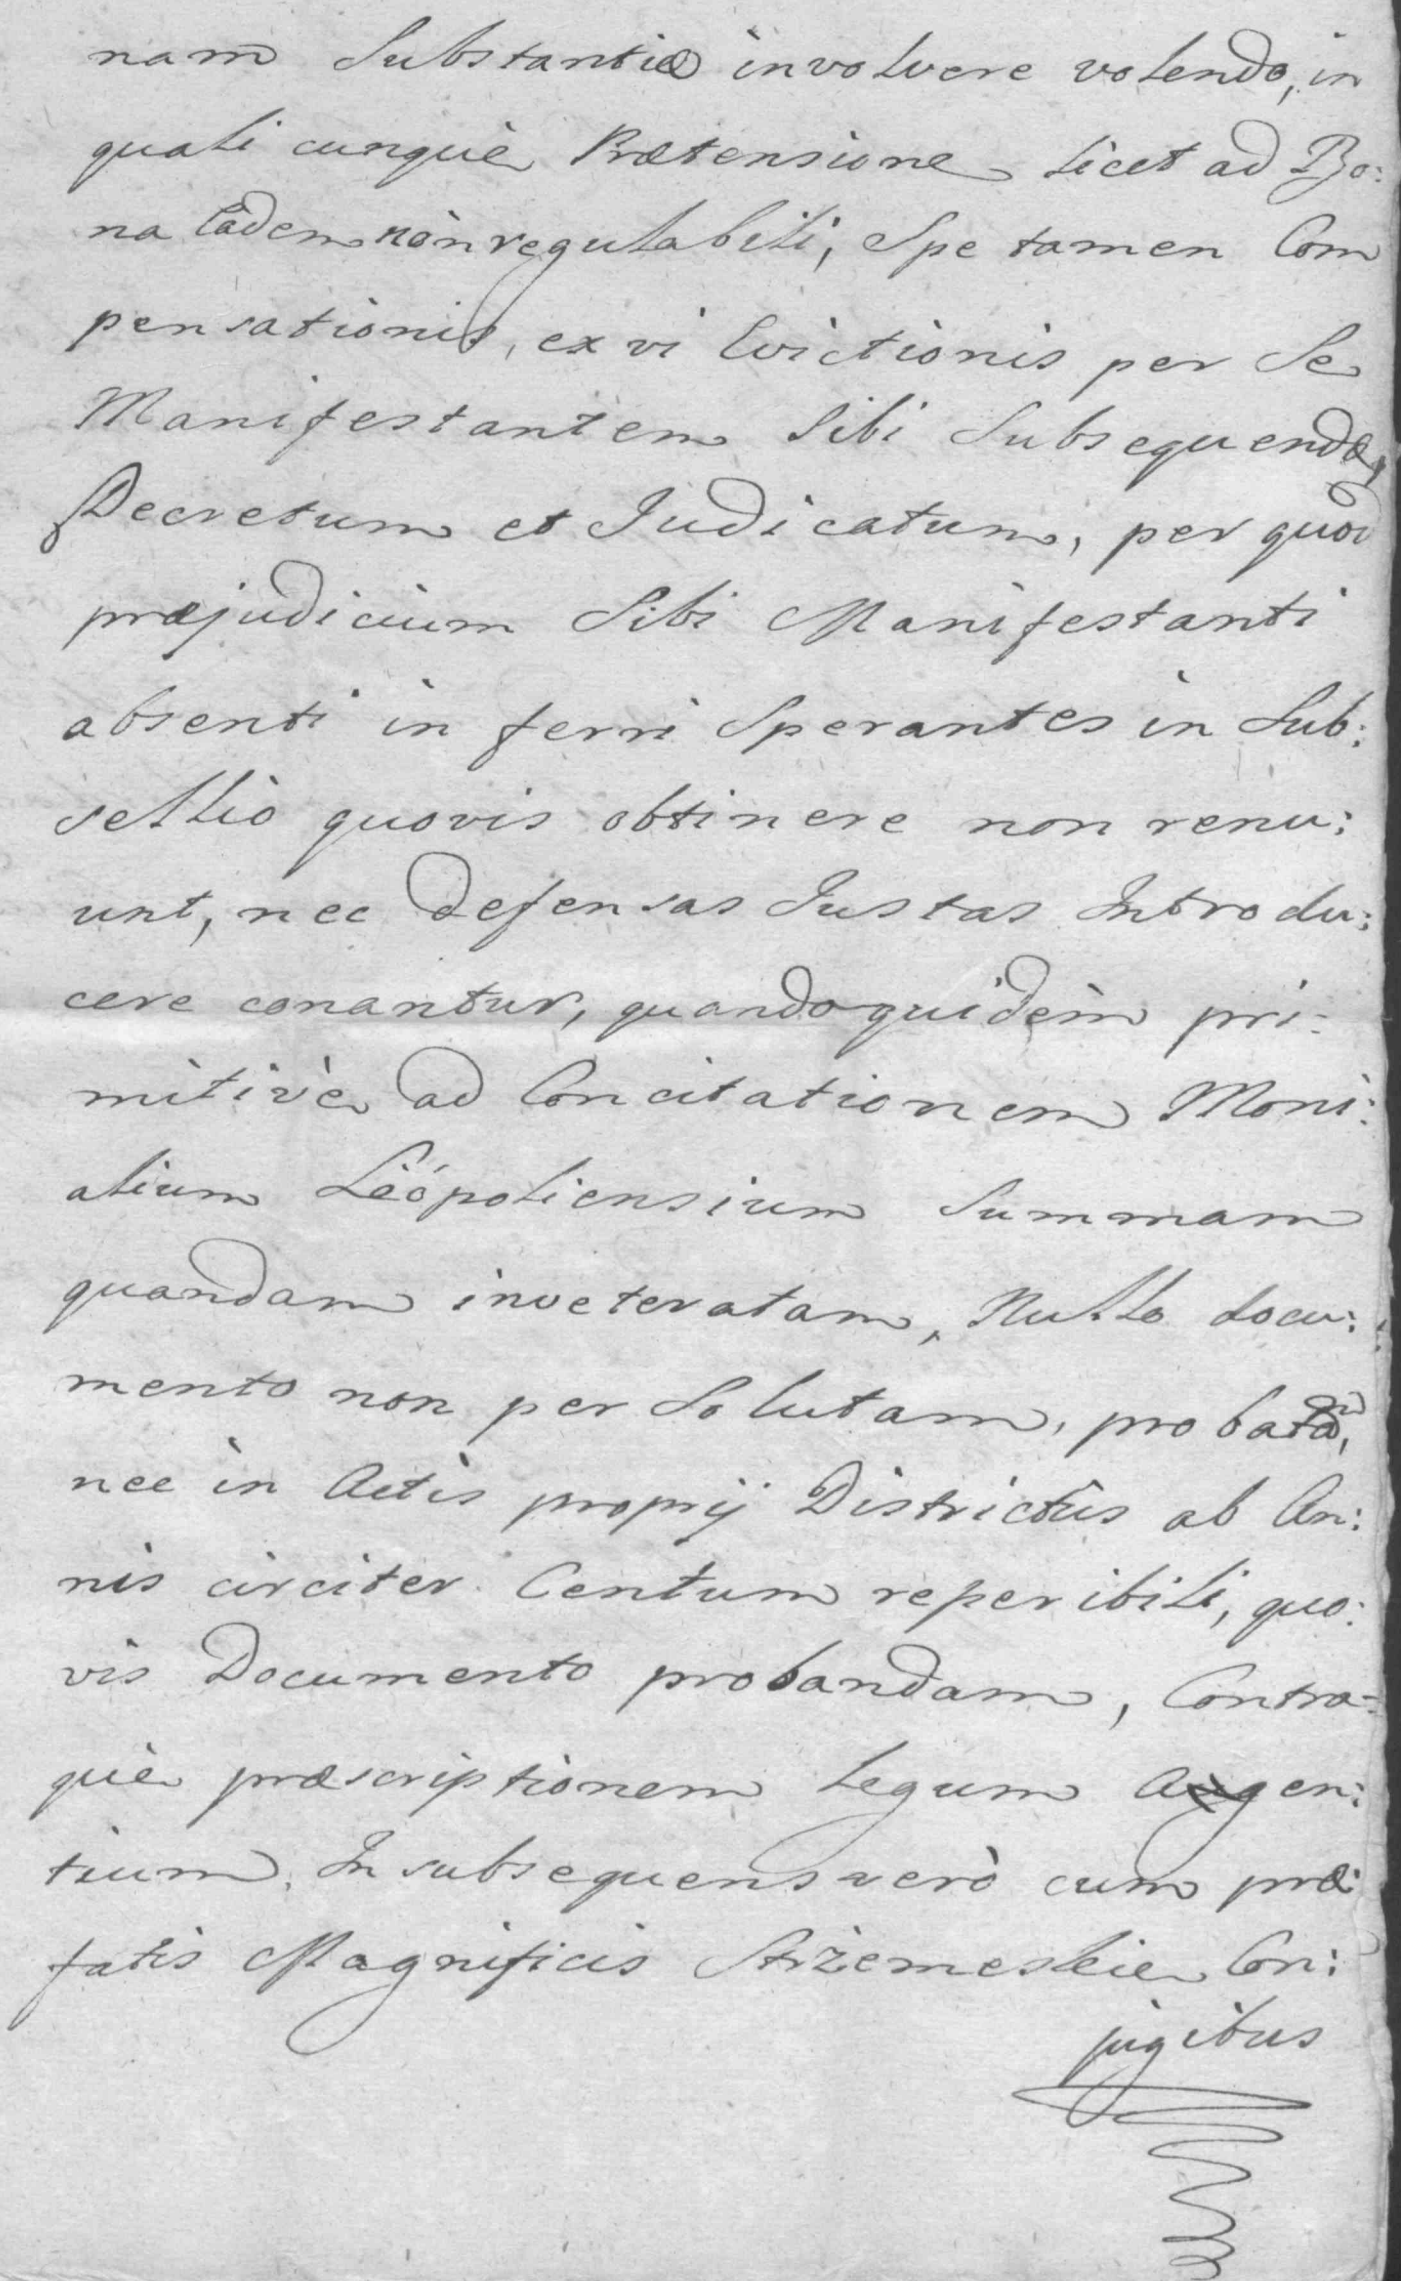 nam Substantiæ involvere volendo, in
quali cunquè Prætensione licet ad Bo:
na Eadem non regulabili, Spe tamen Com
pensationis, ex vi Evictionis per Se
Manifestantem Sibi Subsequendæ,
Decretum et Judicatum, per quod
præjudicium Sibi Manifestanti
absenti in ferri Sperantes in Sub:
sellio quovis obtinere non renu:
unt, nec defensas Justas Introdu:
cere conantur, quandoquidem pri:
mitivè ad Concitationem Moni:
alium Leopoliensium Summam
quandam inveteratam, Nullo docu:
mento non per Solutam, probatam,
nec in Actis proprij Districtûs ab An:
nis circiter Centum reperibili, quo:
vis Documento probandam, Contra=
què præscriptionem Legum Agen:
tium, In subsequens verò cum præ:
fatis Magnificis Strzemeskie Con:
jugibus